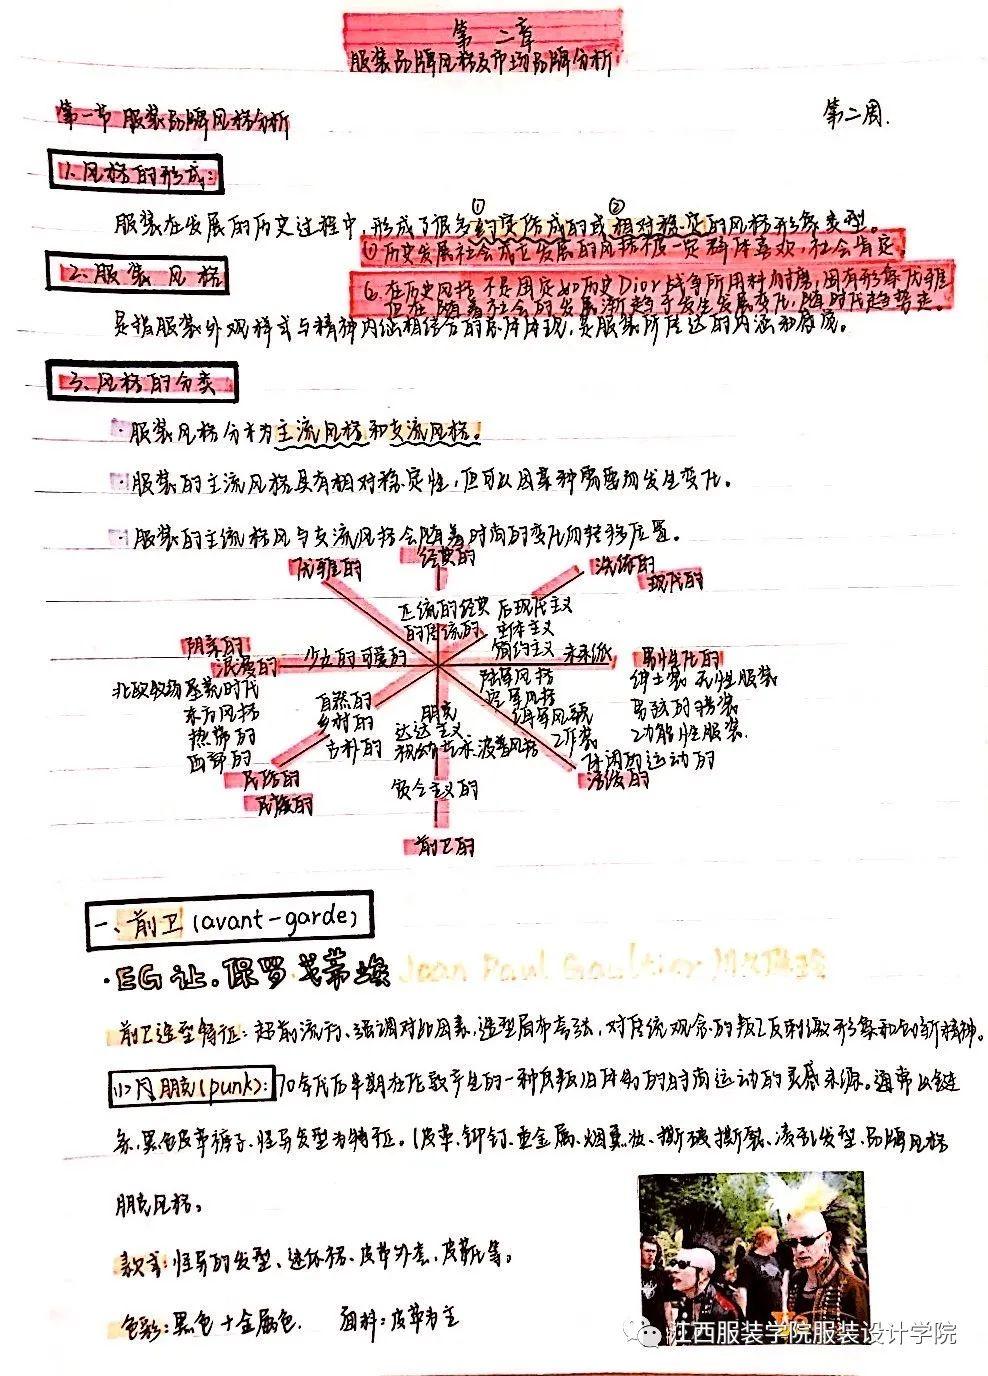 第二章
服装品牌风格及市场品牌分析
第一节 服装品牌风格分析
第二周.
1.风格的形成:
① ②
服装在发展的历史过程中,形成了很多约定俗成的或相对稳定的风格形象类型。
①历史发展社会 发展的风格被一定群体喜欢,社会肯定
2.服装风格
②.在历史风格不是固定如历史Dior战争所用料 ,固有形象优雅
但在随着社会的发展渐趋于发生发展变化,随时代趋势走。
是指服装外观样式与精神内涵相结合的总体体现,是服装所传达的内涵和感觉。
3、风格的分类
·服装风格分为主流风格和支流风格。
·服装的主流风格具有相对稳定性,但可以因某种需要而发生变化。
·服装的主流格风与支流风格会随着时尚的变化而转移位置。
优雅的 经典的 洗练的
现代的
正统的经典 后现代主义
的传统的 立体主义
简约主义
阴柔的
浪漫的 少女的可爱的 未来派 男性化的
北欧牧场 时代
东方风格
热带的
西部的
自然的
乡村的
古朴的
朋克
达达主义
视幻艺术 波普风格
海军风格
空军风格
工作装
绅士装 无性服装
男孩的猎装
功能性服装.
休闲的运动的
活泼的
民俗的
民族的
贫乏主义的
前卫的
一、前卫(avant-garde)
·EG 让。保罗·戈蒂埃 Jean Paul Gaultier
前卫造型特征:超前流行、强调对比因素,造型局部夸张,对传统观念的叛逆反刺激形象和创新精神。
(1)朋克(punk):70年代后半期在伦敦产生的一种反叛旧体制的时尚运动的灵感来源。通常以链
条,黑色皮革裤子、怪异发型为特征。(皮革、铆钉、重金属、烟熏妆、撕破撕裂、 发型、品牌风格
朋克风格。
款式:怪异的发型、迷你裙、皮革外套、皮靴等。
色彩:黑色+金属色. 面料:皮革为主
江西服装学院服装设计学院